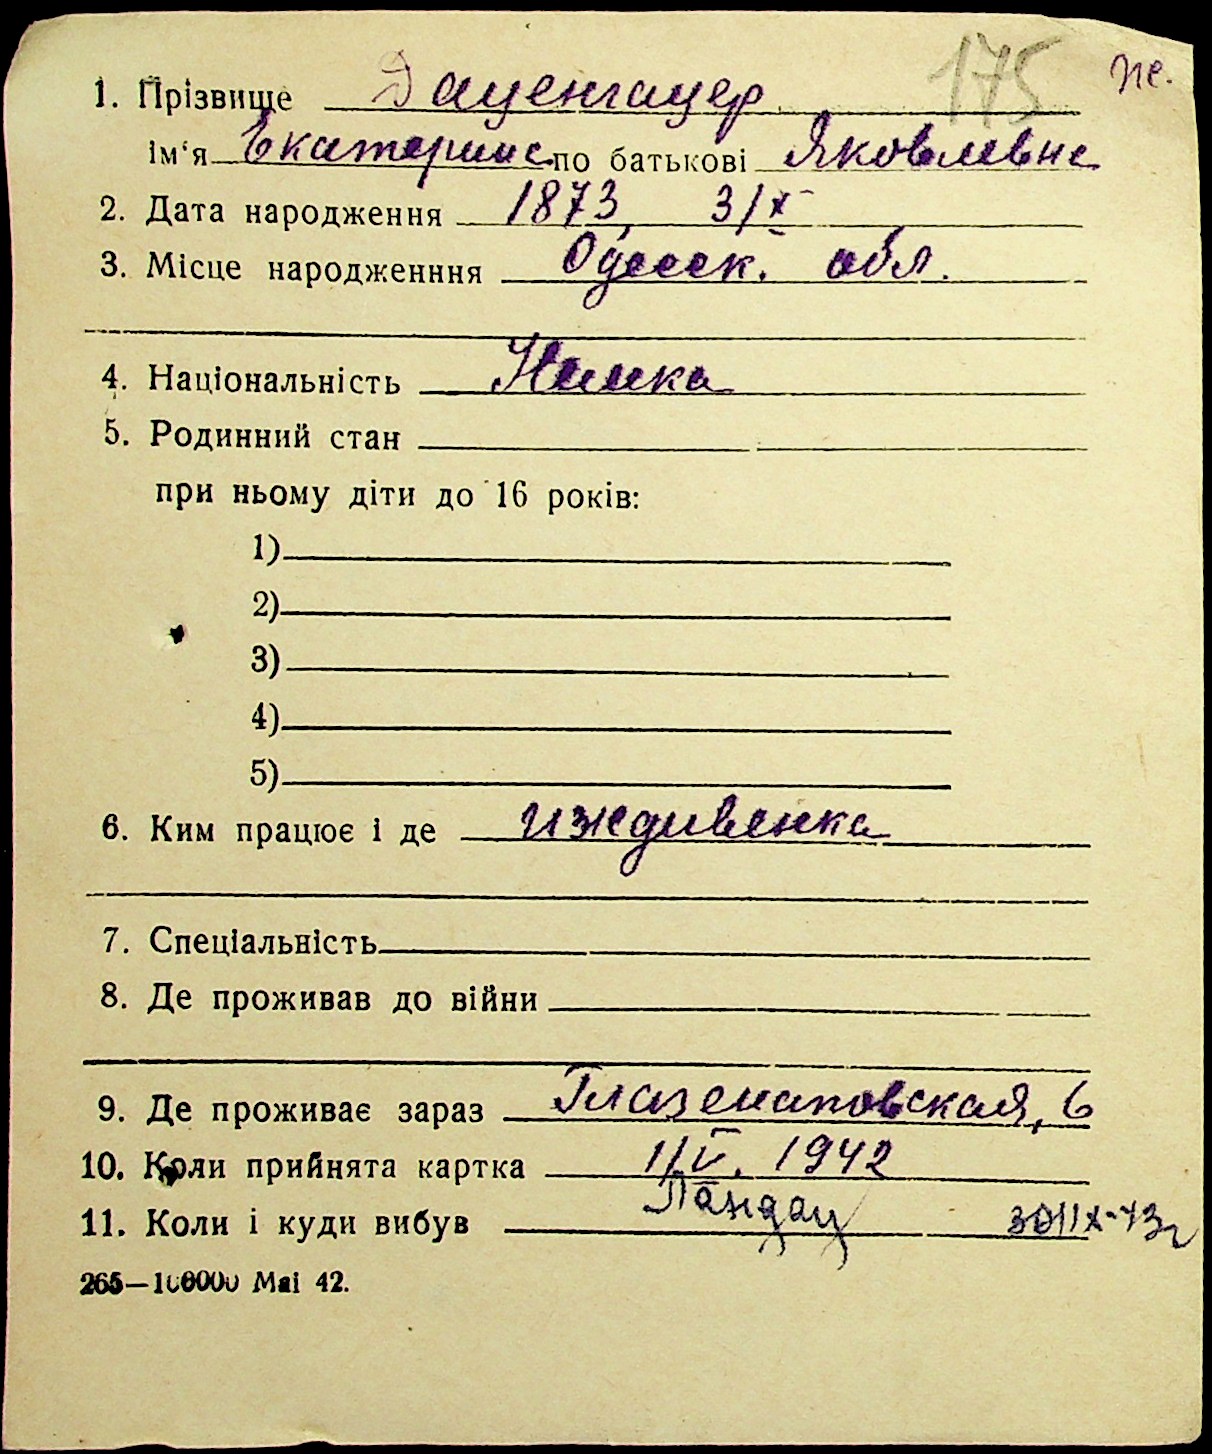 175 пе.
1. Прізвище Даценгацер
ім‘я Екатерина по батькові Яковлевна
2. Дата народження 1873 3/X
3. Місце народженння Одесск. обл.
4. Національність Нимка
5. Родинний стан
при ньому діти до 16 років:
1)
2)
3)
4)
5)
6. Ким працює і де иждивенка
7. Спеціальність
8. Де проживав до війни
9. Де проживає зараз 6
10. Коли прийнята картка 1/V. 1942
Ландау
11. Коли і куди вибув 30/IX-43г
265—100000 Маі 42.